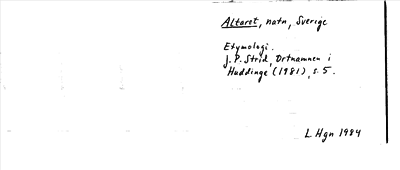 Altaret, natn, Sverige
Etymologi.
J. P. Strid, Ortnamnen i
Huddinge (1981), s. 5.
L Hgn 1984